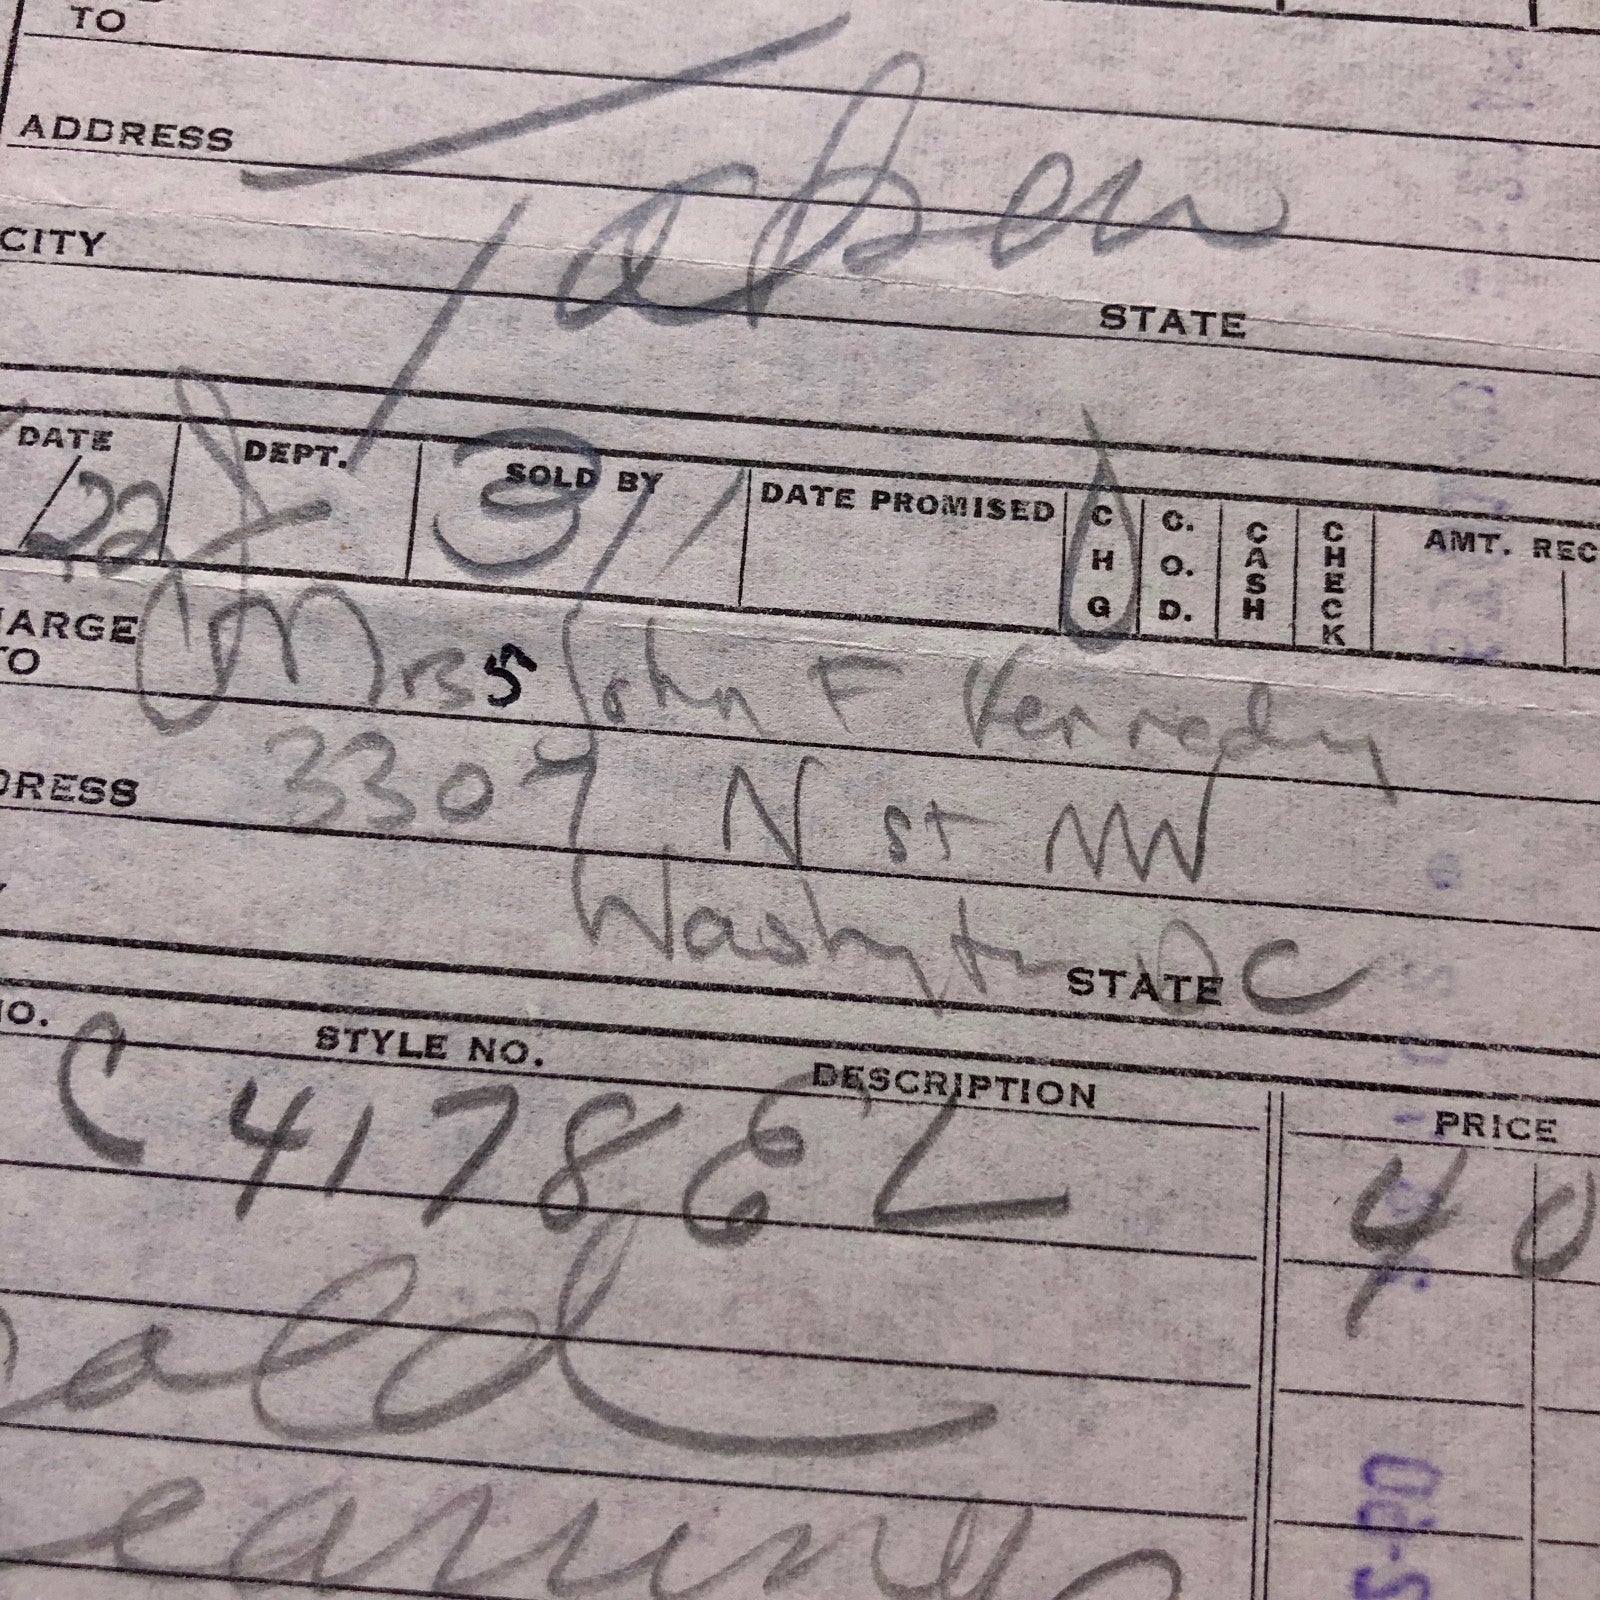 TO
ADDRESS
Taken
CITY
STATE
DATE DEPT. SOLD BY DATE PROMISED CHG C.O.D. CASH CHECK AMT. REC
/22 31/
HARGE TO Mrs John F Kennedy
DRESS 3307 N St NW
Washington STATE DC
NO. STYLE NO. DESCRIPTION PRICE
C 4178 40
earring